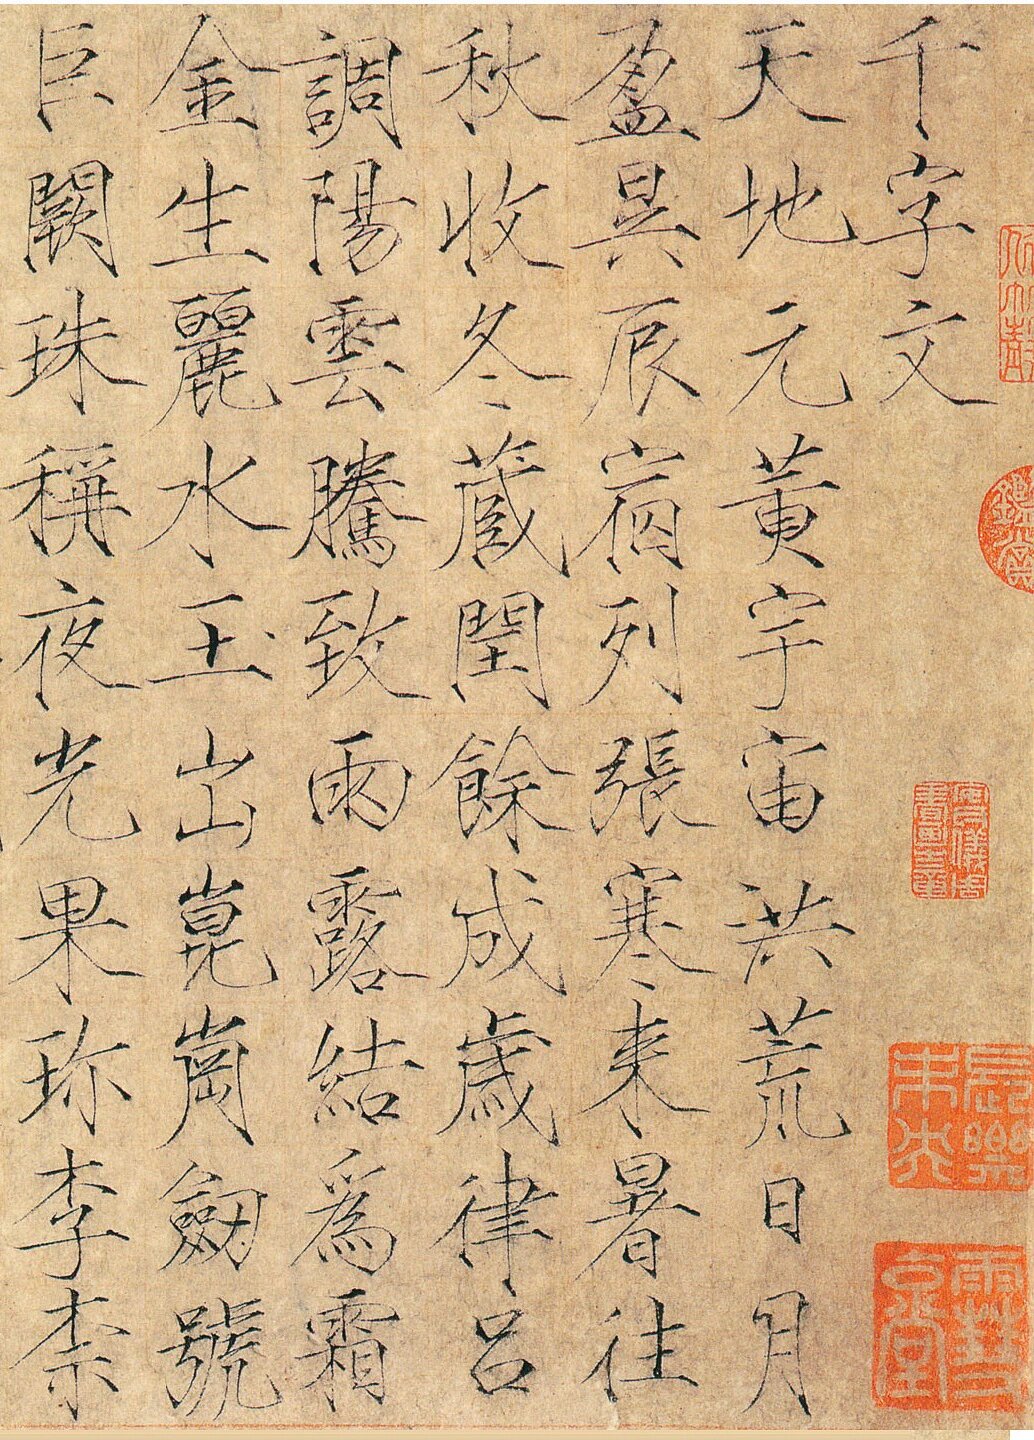 千字文
天地元黃宇宙洪荒日月
盈昃辰宿列張寒来暑往
秋收冬蔵閏餘成歳律呂
調陽雲騰致雨露結為霜
金生麗水玉出崑崗劔號
巨闕珠稱夜光果珎李柰